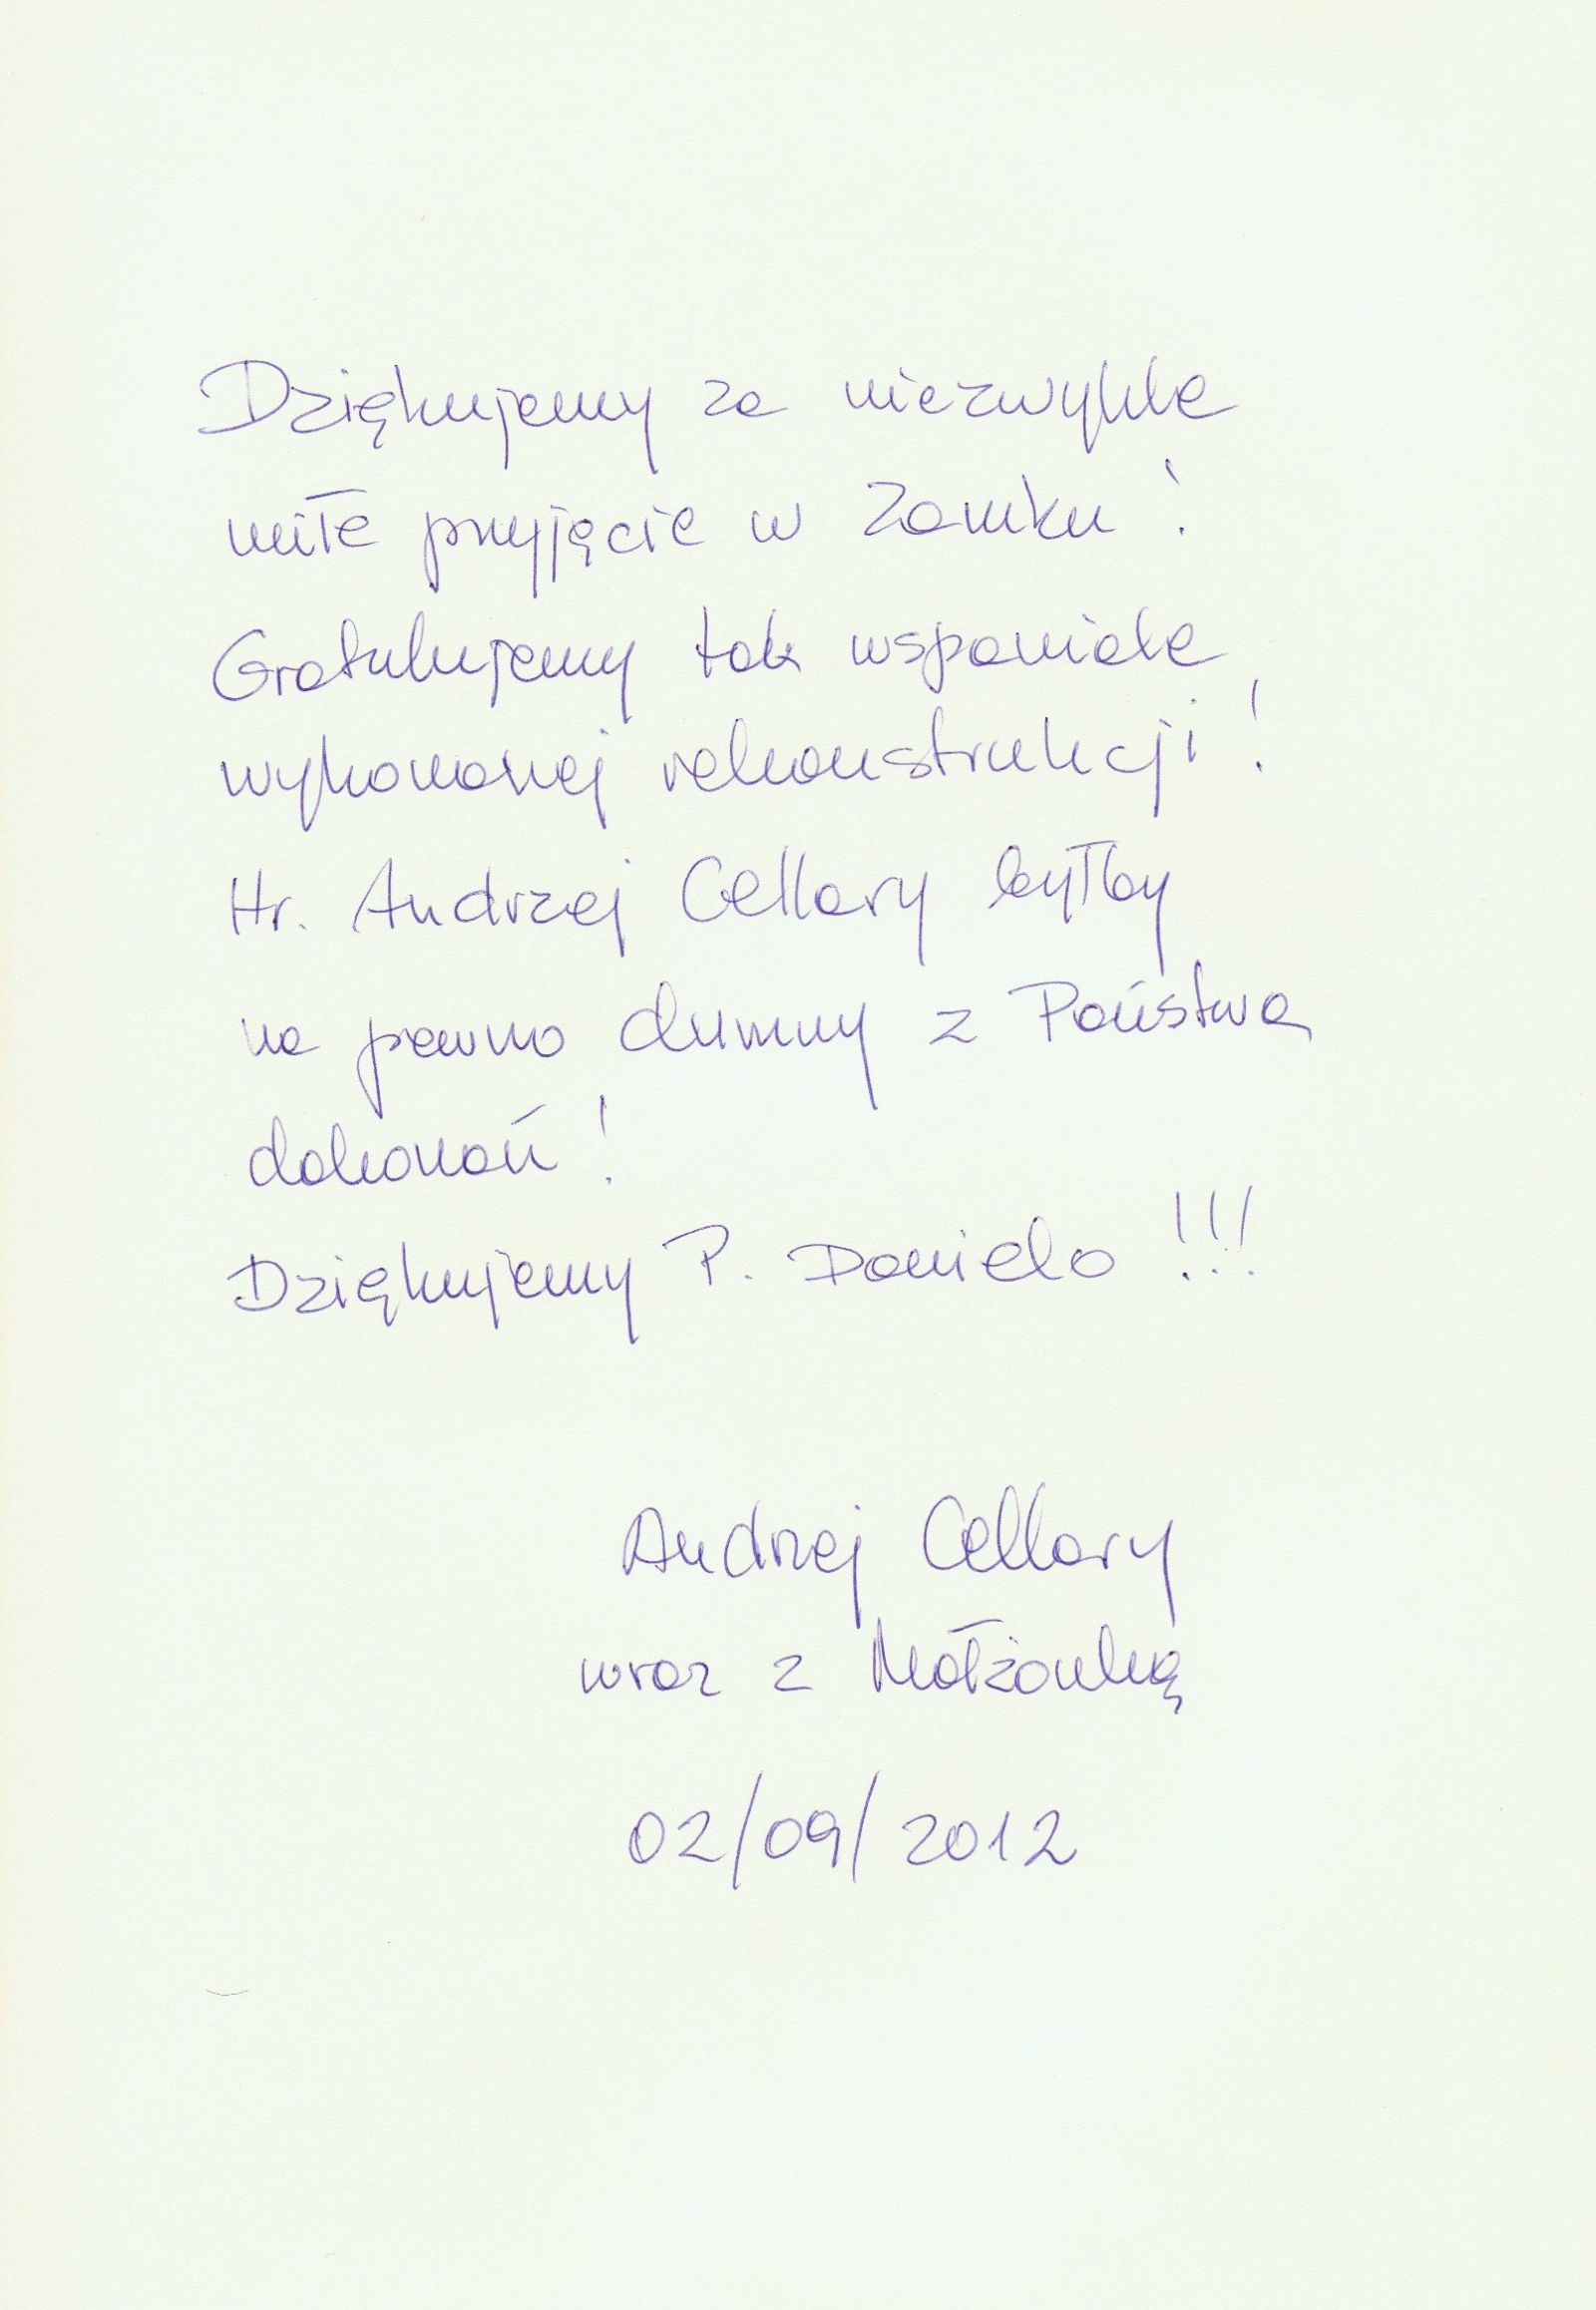 Dziękujemy za niezwykle
miłe przyjęcie w Zamku !
Gratulujemy tak wspaniale
wykonanej rekonstrukcji !
Hr. Andrzej Cellary byłby
na pewno dumny z Państwa
dokonań !
Dziękujemy P. Danielo !!!
Andrzej Cellary
wraz z Małżonką
02/09/2012